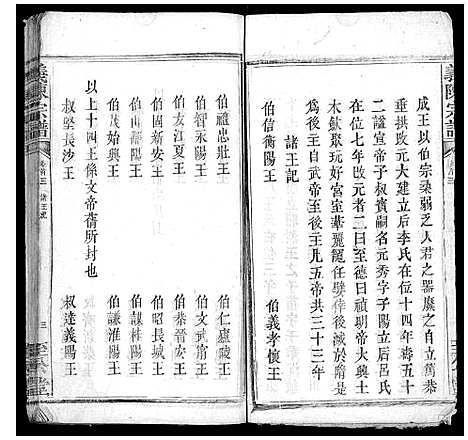 成王以伯宗柒弱乏人君之器廢之而自立篤恭
垂拱改元大建立后李氏在位十四年壽五十
二諡宣帝子叔寶嗣名元秀字子陽立后呂氏
在位七年改元者二曰至德曰禎明帝大興土
木斂聚玩好宮室華麗寵任嬖倖後滅於隋前
後主自武帝至後主凡五帝共三十三年
諸王記
伯信衡陽王 伯義孝懷王
伯禮忠壯王 伯仁廬陵王
伯智永陽王 伯文武甯王
伯友江夏王 伯恭晉安王
伯固新安王 伯昭長城王
伯山鄱陽王 伯謀桂陽王
伯茂始興王 伯謙淮陽王
以上十四王係文帝蒨所封也
叔堅長沙王 叔達義陽王
義陳宗譜
卷首三
諸王記
三
義陳宗譜
卷首三